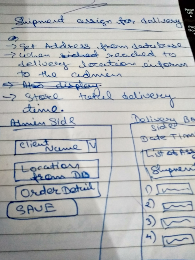 Shipment assign for delivery
→ Get Address from database
→ When reached to
delivery location inform
to the admin
→ Also display
→ Store total delivery
time.
Admin Side
Client
Name
Location
from DB
Order Detail
SAVE
Delivery
Side
Date Time
List of
1)
2)
3)
4)